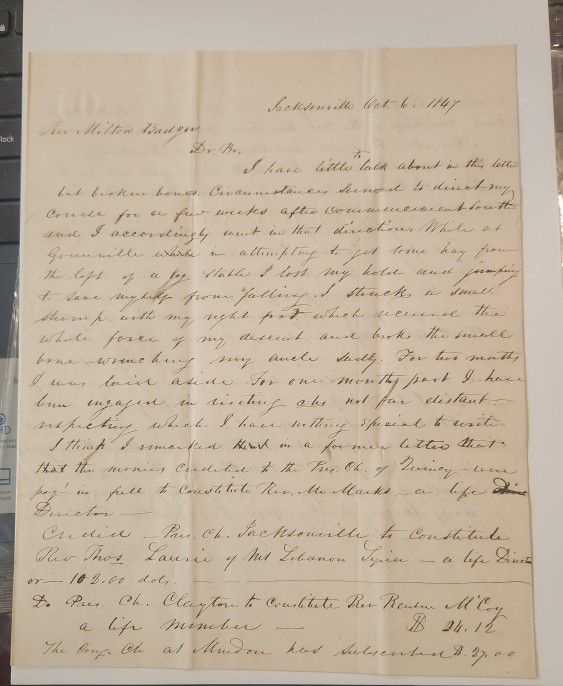 Jacksonville Oct. 6. 1847
Rev Milton Badger
Dr Br.
I have little to talk about in this letter
but broken bones. Circumstances seemed to direct my
course for a few weeks after commencement South
and I accordingly went in that direction. While at
Greenville while in attempting to get some hay from
the loft of a log stable I lost my hold and jumping
to save myself from falling. I struck a small
stump with my right foot which received the
whole force of my descent and broke the small
bone wrenching my ancle sadly. For two months
I was laid aside. For one months past I have
been engaged in visiting chs not far distant
respecting which I have nothing special to write
I think I remarked in a former letter that
that the monies credited to the Pres. Ch. of Quincy were
pay' in full to constitute Rev. Mr Marks - a life
Director -
Credit - Pres. Ch. Jacksonville to constitute
Rev. Thos Laurie of Mt Lebanon Syria - a life Direct
or - 102.00 dols.
Do Pres. Ch. Clayton to constitute Rev Reuben McCoy
a life member - $ 24.12
The Cong Ch at Mendon has subscribed $.27.00